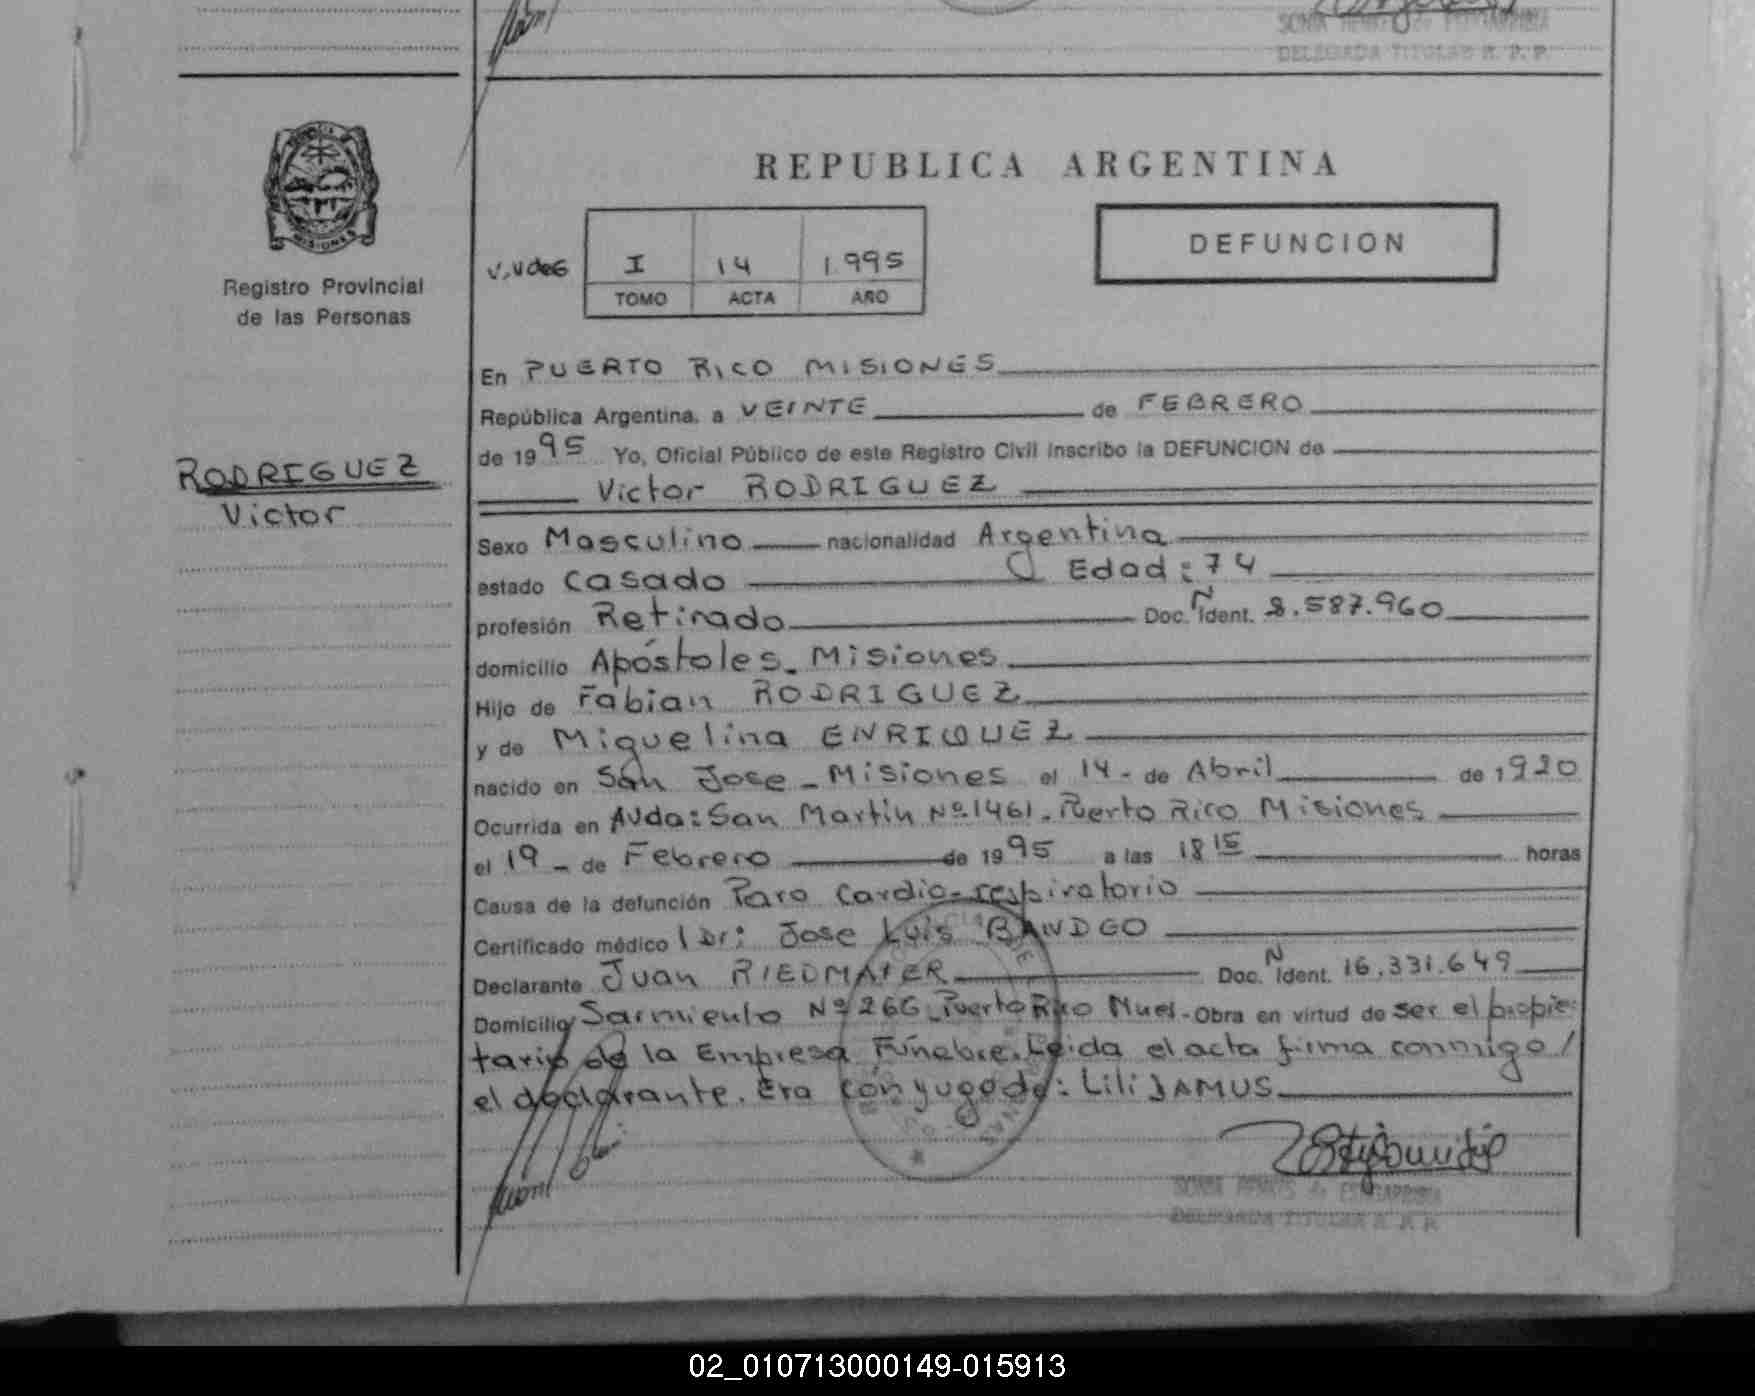 DELEGADA TITULAR R. P. P.
MISIONES
Registro Provincial
de las Personas
REPUBLICA ARGENTINA
DEFUNCION
I 14 1.995
TOMO ACTA AÑO
RODRIGUEZ
Victor
En PUERTO RICO MISIONES
República Argentina, a VEINTE de FEBRERO
de 1995 Yo, Oficial Público de este Registro Civil inscribo la DEFUNCION de
Victor RODRIGUEZ
Sexo Masculino nacionalidad Argentina
estado Casado Edad: 74
profesión Retirado Doc. N Ident. 8.587.960
domicilio Apóstoles - Misiones
Hijo de Fabian RODRIGUEZ
y de Miguelina ENRIQUEZ
nacido en San Jose - Misiones el 14 - de Abril de 1920
Ocurrida en Avda: San Martin Nº 1461 - Puerto Rico Misiones
el 19 - de Febrero de 1995 a las 18 15 horas
Causa de la defunción Paro Cardio-respiratorio
Certificado médico Dr: Jose Luis
Declarante Juan Doc. N Ident. 16.331.649
Domicilio Sarmiento Nº 266 - Puerto Rico - Obra en virtud de ser el propie-
tario de la Empresa Fúnebre. Leida el acta firma conmigo /
el declarante. Era conyuge de: Lili JAMUS
DELEGADA TITULAR R. P. P.
02_010713000149-015913